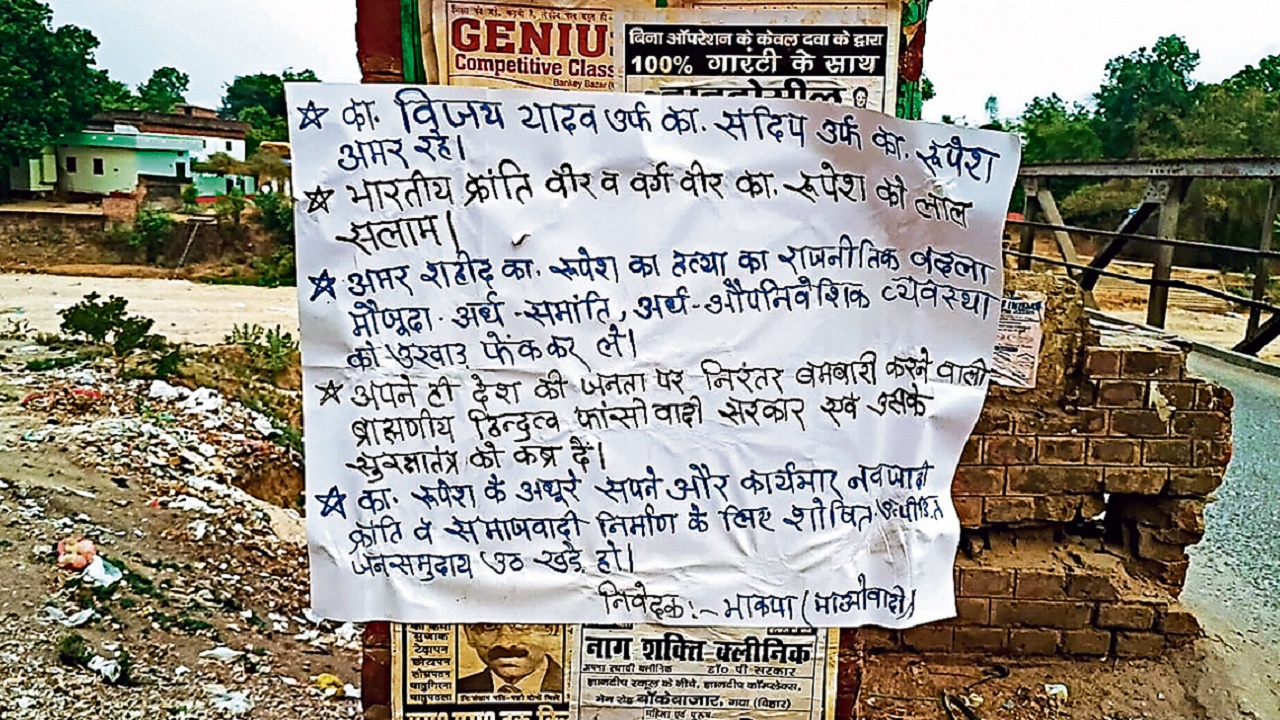 GENIU
Competitive Class
Bankey Bazar
बिना ऑपरेशन के केवल दवा के द्वारा
100% गारंटी के साथ
☆ का. विजय यादव उर्फ का. संदिप उर्फ का. रूपेश
अमर रहे।
☆ भारतीय क्रांति वीर व वर्ग वीर का. रूपेश को लाल
सलाम।
☆ अमर शहीद का. रूपेश का हत्या का राजनीतिक बदला
मौजूदा अर्ध-समांति, अर्ध-औपनिवेशिक व्यवस्था
को उखाड़ फेंककर लें।
☆ अपने ही देश की जनता पर निरंतर बमबारी करने वाली
ब्राह्मणीय हिन्दुत्व फांसीवादी सरकार एवं उसके
सुरक्षातंत्र को कब्र दें।
☆ का. रूपेश के अधूरे सपने और कार्यभार नवजनवादी
क्रांति व समाजवादी निर्माण के लिए शोषित उत्पीड़ित
जनसमुदाय उठ खड़े हो।
निवेदक:- भाकपा (माओवादी)
सुजाक
नाग शक्ति क्लीनिक
अपना स्थायी क्लीनिक डॉ० पी सरकार
ज्ञानदीप स्कूल के नीचे, ज्ञानदीप कॉम्प्लेक्स,
मेन रोड बाँकेबाजार, गया (बिहार)
महिला एवं पुरुष